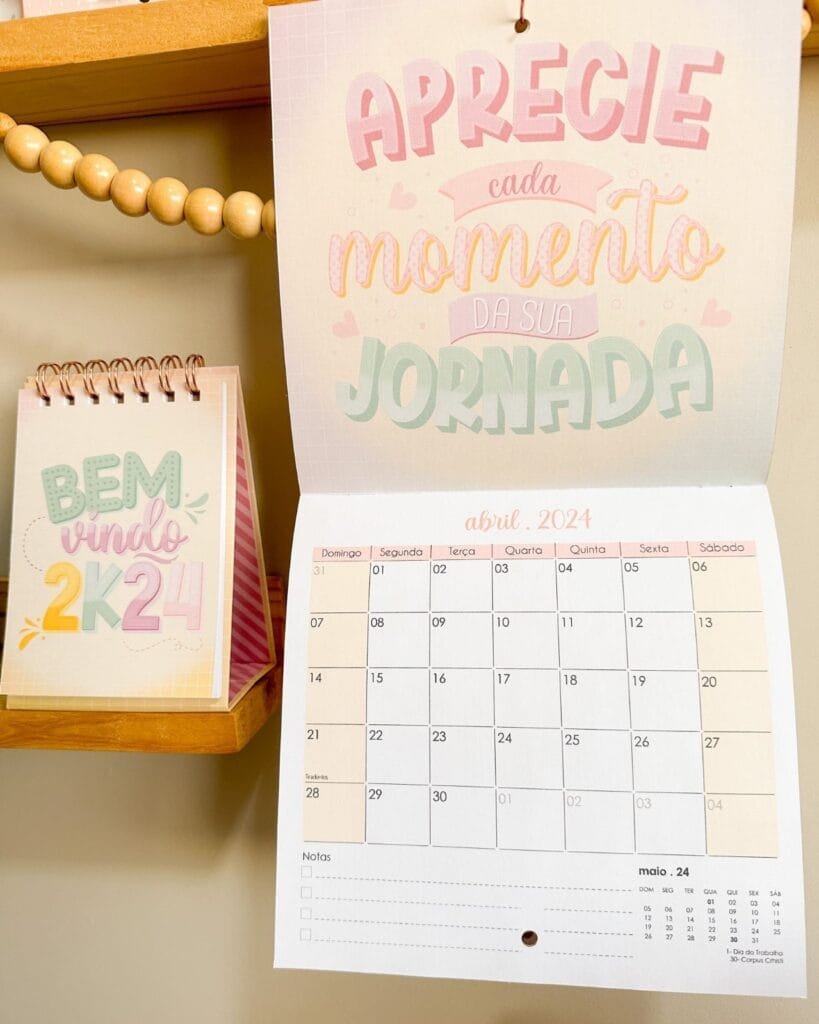 APRECIE
cada
momento
DA SUA
JORNADA
BEM
vindo
2K24
abril . 2024
Domingo Segunda Terça Quarta Quinta Sexta Sábado
31 01 02 03 04 05 06
07 08 09 10 11 12 13
14 15 16 17 18 19 20
21 22 23 24 25 26 27
Tiradentes
28 29 30 01 02 03 04
Notas
maio . 24
DOM SEG TER QUA QUI SEX SÁB
01 02 03 04
05 06 07 08 09 10 11
12 13 14 15 16 17 18
19 20 21 22 23 24 25
26 27 28 29 30 31
1- Dia do Trabalho
30- Corpus Christi